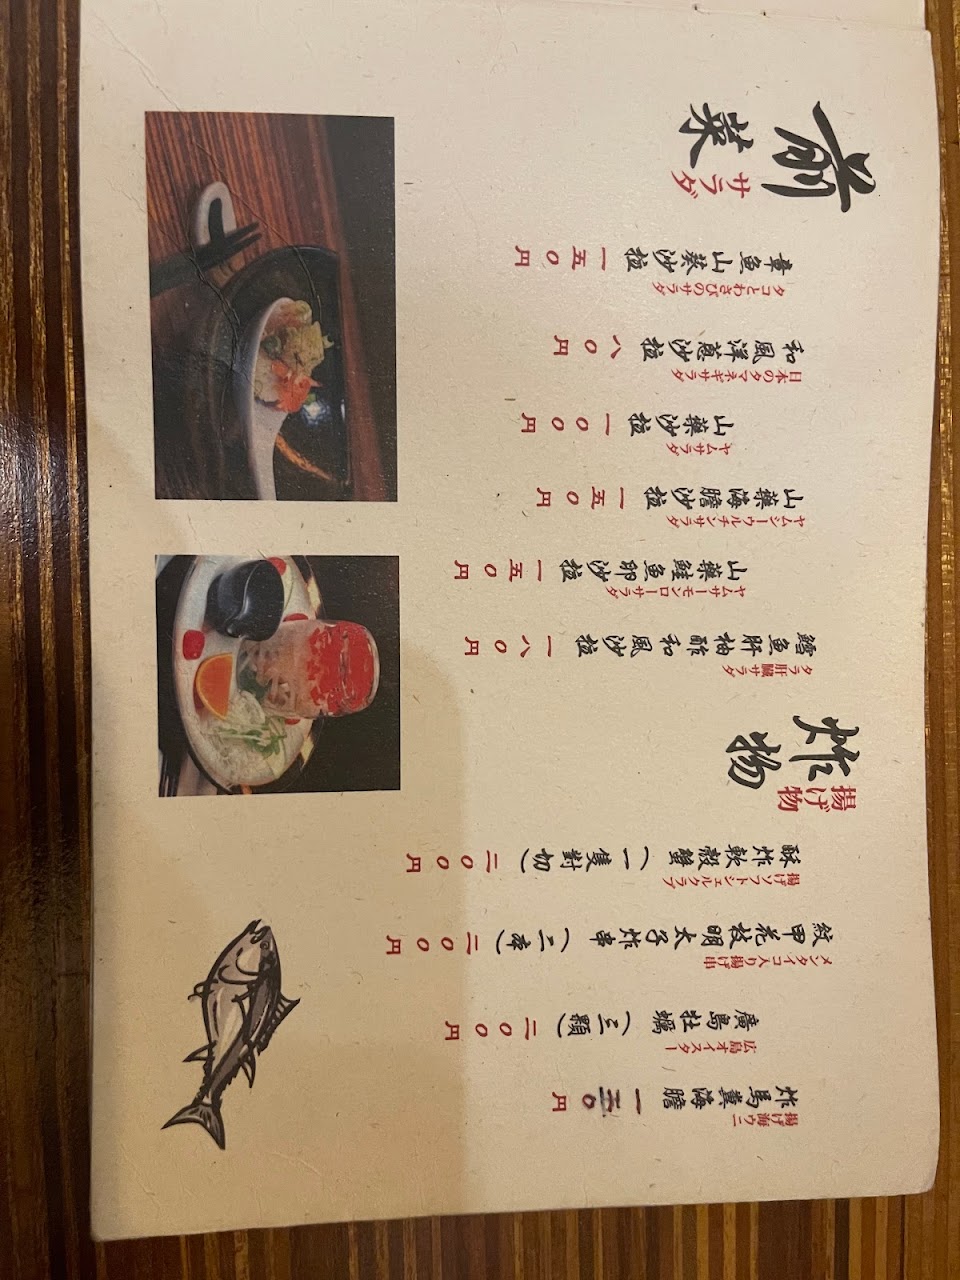 前菜
サラダ
章魚山葵沙拉 一五〇円
タコとわさびのサラダ
和風洋蔥沙拉 八〇円
日本のタマネギサラダ
山藥沙拉 一〇〇円
ヤムサラダ
山藥海膽沙拉 一五〇円
ヤムシーウルチンサラダ
山藥鮭魚卵沙拉 一五〇円
ヤムサーモンローサラダ
鱈魚肝柚酢和風沙拉 一八〇円
タラ肝臓サラダ
炸物
揚げ物
酥炸軟殼蟹(一隻對切) 二〇〇円
揚げソフトシェルクラブ
紋甲花枝明太子炸串(二串) 二〇〇円
メンタイコ入り揚げ串
廣島牡蠣(三顆) 二〇〇円
広島オイスター
炸馬糞海膽 一五〇円
揚げ海ウニ